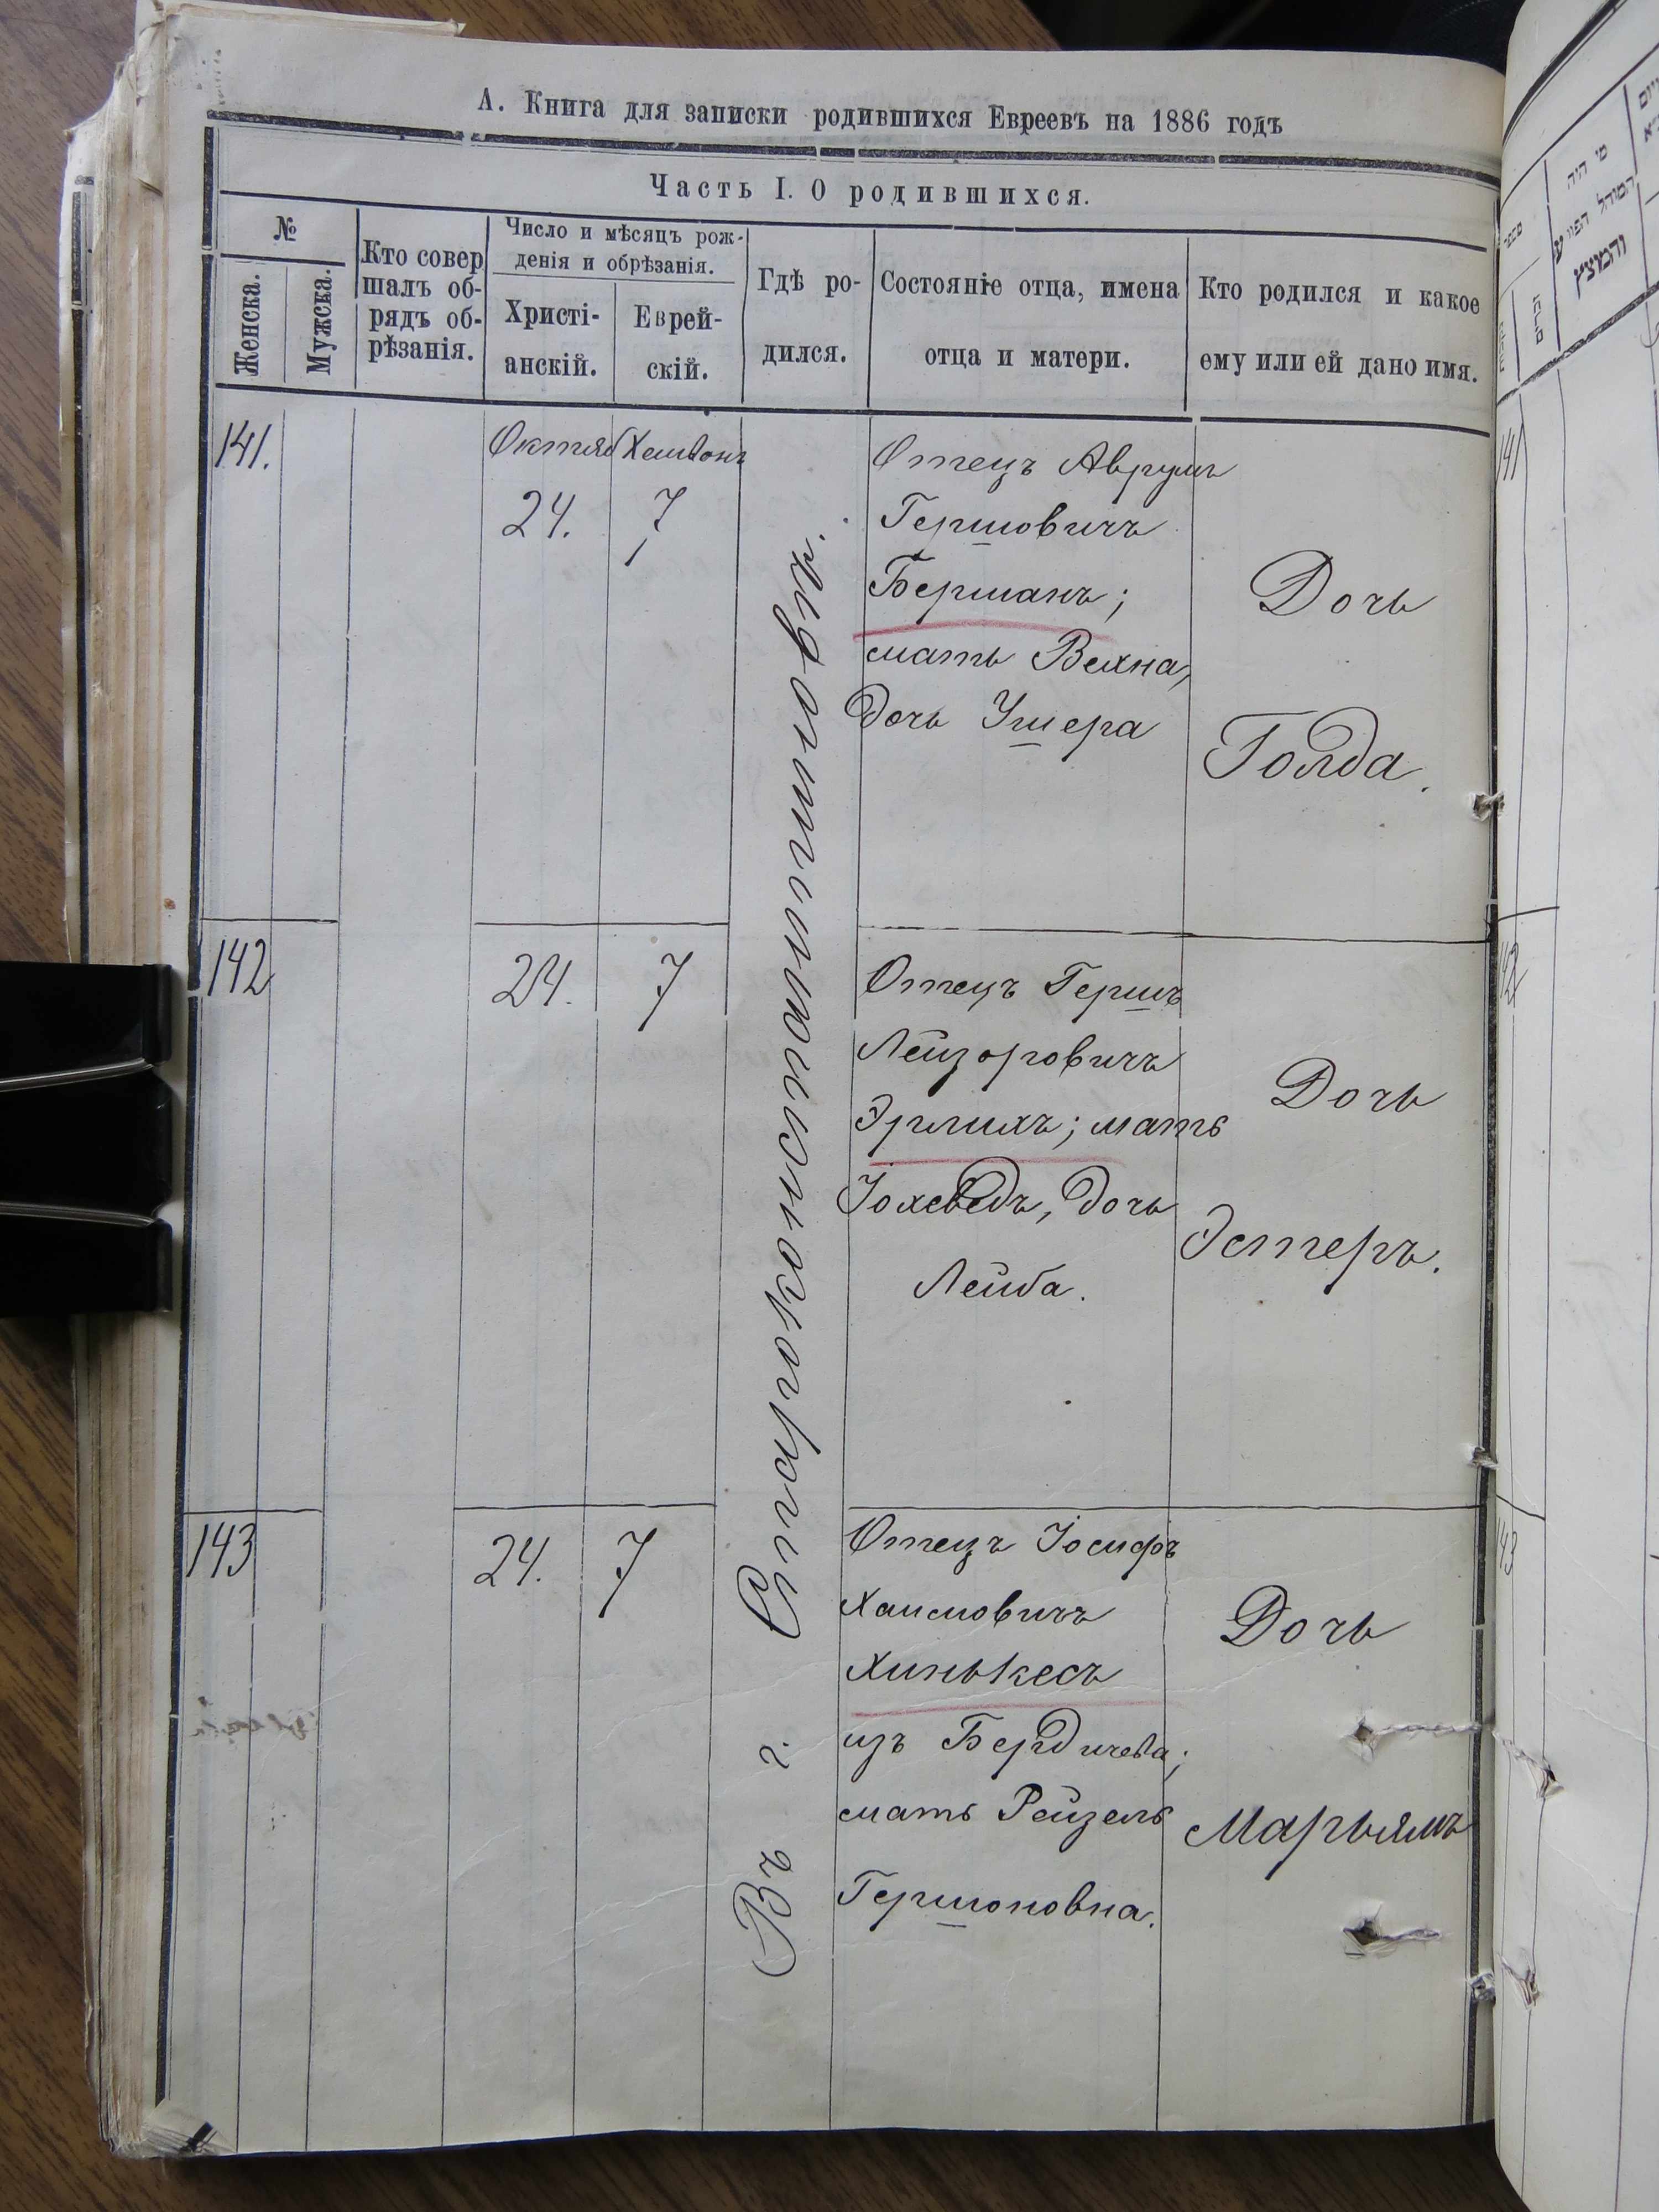 А. Книга для записки родившихся Евреевъ на 1886 годъ
Часть I. О родившихся.
№
Женска.
Мужска.
Кто совер
шалъ об-
рядъ об-
рѣзанія.
Число и мѣсяцъ рож-
денія и обрѣзанія.
Христі-
анскій.
Еврей-
скій.
Гдѣ ро-
дился.
Состояніе отца, имена
отца и матери.
Кто родился и какое
ему или ей дано имя.
141.
Октяб
24.
Хешвонъ
7
Въ г. Староконстантиновѣ.
Отецъ Аврумъ
Гершовичъ
Берманъ;
мать Вехна,
дочь Ушера
Дочь
Голда.
142
24.
7
Отецъ Гершъ
Лейзоровичъ
Эрлихъ; мать
Іохеведъ, дочь
Лейба.
Дочь
Эстеръ.
143
24.
7
Отецъ Іосифъ
Хаимовичъ
Хинькесъ
изъ Бердичева;
мать Рейзель
Гершоновна.
Дочь
Марьямъ
מי היה
המוהל
והמוצץ
141
142
143